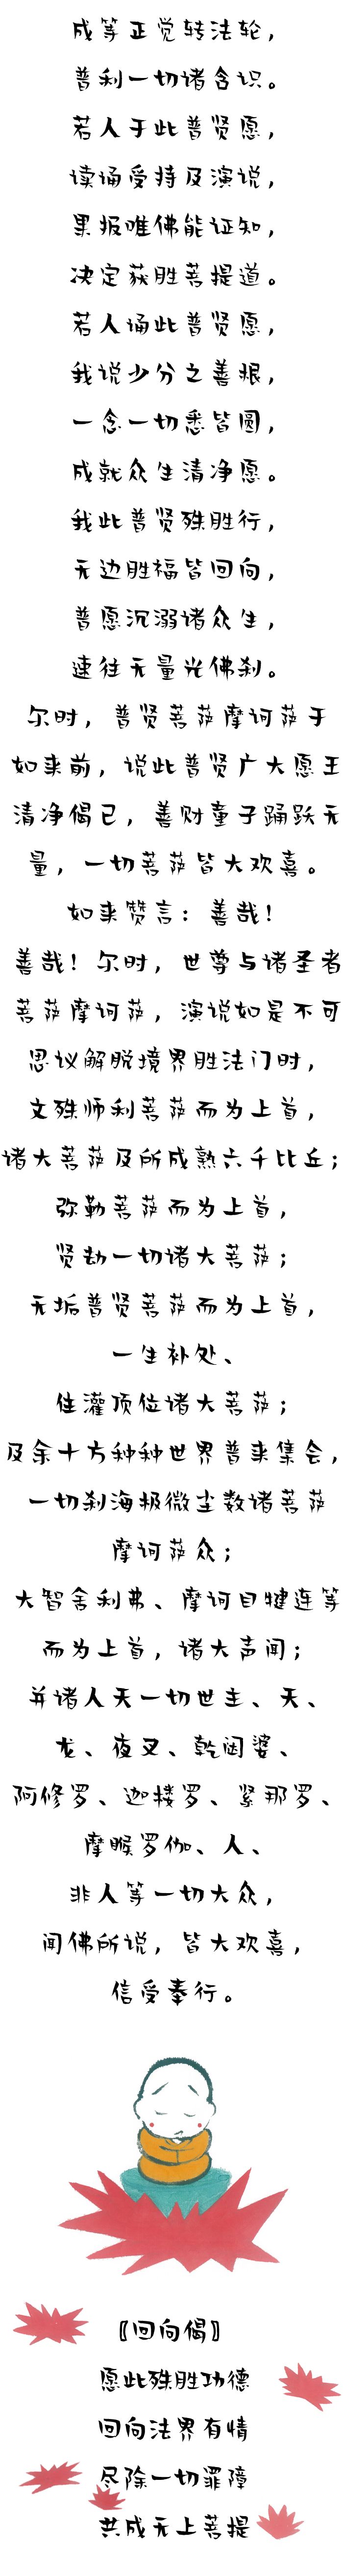 成等正觉转法轮，
普利一切诸含识。
若人于此普贤愿，
读诵受持及演说，
果报唯佛能证知，
决定获胜菩提道。
若人诵此普贤愿，
我说少分之善根，
一念一切悉皆圆，
成就众生清净愿。
我此普贤殊胜行，
无边胜福皆回向，
普愿沉溺诸众生，
速往无量光佛刹。
尔时，普贤菩萨摩诃萨于
如来前，说此普贤广大愿王
清净偈已，善财童子踊跃无
量，一切菩萨皆大欢喜。
如来赞言：善哉！
善哉！尔时，世尊与诸圣者
菩萨摩诃萨，演说如是不可
思议解脱境界胜法门时，
文殊师利菩萨而为上首，
诸大菩萨及所成熟六千比丘；
弥勒菩萨而为上首，
贤劫一切诸大菩萨；
无垢普贤菩萨而为上首，
一生补处、
住灌顶位诸大菩萨；
及余十方种种世界普来集会，
一切刹海极微尘数诸菩萨
摩诃萨众；
大智舍利弗、摩诃目犍连等
而为上首，诸大声闻；
并诸人天一切世主、天、
龙、夜叉、乾闼婆、
阿修罗、迦楼罗、紧那罗、
摩睺罗伽、人、
非人等一切大众，
闻佛所说，皆大欢喜，
信受奉行。
〖回向偈〗
愿此殊胜功德
回向法界有情
尽除一切罪障
共成无上菩提